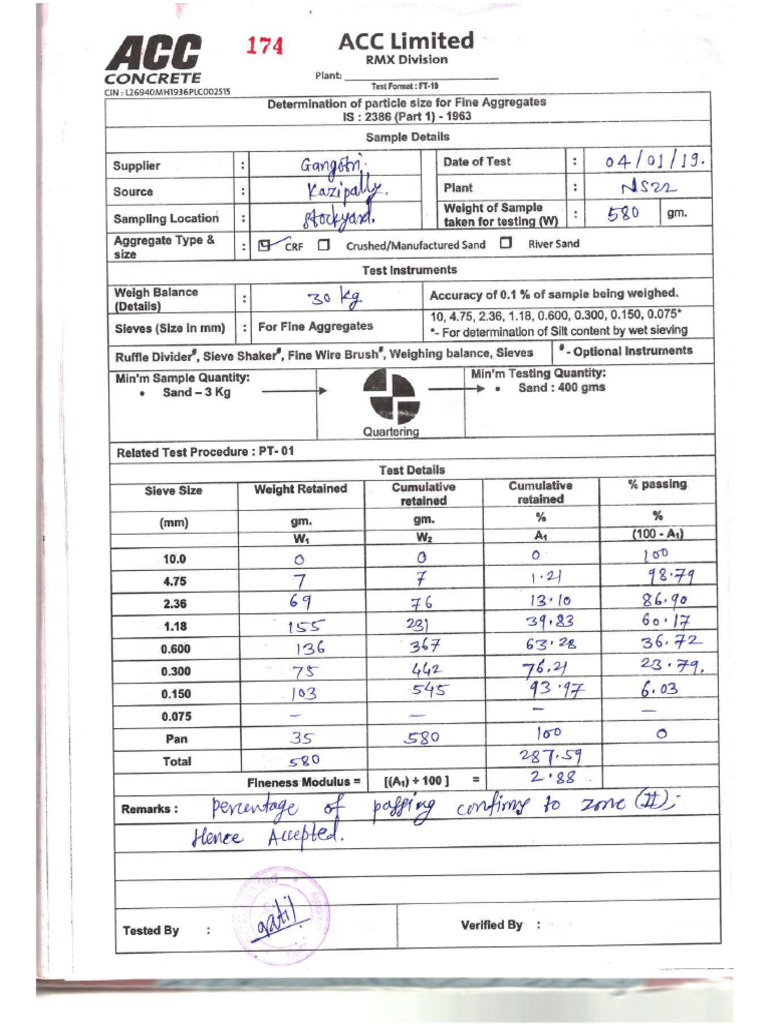 ACC
CONCRETE
CIN : L26940MH1936PLC002515
174
ACC Limited
RMX Division
Plant:
Test Format : FT-19
Determination of particle size for Fine Aggregates
IS : 2386 (Part 1) - 1963
Sample Details
Supplier : Gangotri. Date of Test : 04/01/19.
Source : Kazipally. Plant : NS22
Sampling Location : Stockyard. Weight of Sample taken for testing (W) : 580 gm.
Aggregate Type & size : CRF Crushed/Manufactured Sand River Sand
Test Instruments
Weigh Balance (Details) : 30 kg Accuracy of 0.1 % of sample being weighed.
Sieves (Size in mm) : For Fine Aggregates 10, 4.75, 2.36, 1.18, 0.600, 0.300, 0.150, 0.075*
*- For determination of Silt content by wet sieving
Ruffle Divider#, Sieve Shaker#, Fine Wire Brush#, Weighing balance, Sieves #- Optional Instruments
Min'm Sample Quantity: Min'm Testing Quantity:
• Sand – 3 Kg • Sand : 400 gms
Quartering
Related Test Procedure : PT- 01
Test Details
Sieve Size Weight Retained Cumulative retained Cumulative retained % passing
(mm) gm. gm. % %
W1 W2 A1 (100 - A1)
10.0 0 0 0 100
4.75 7 7 1.21 98.79
2.36 69 76 13.10 86.90
1.18 155 231 39.83 60.17
0.600 136 367 63.28 36.72
0.300 75 442 76.21 23.79.
0.150 103 545 93.97 6.03
0.075 – – – –
Pan 35 580 100 0
Total 580 287.59
Fineness Modulus = [(A1) ÷ 100 ] = 2.88
Remarks : Percentage of passing confirms to zone (II);
Hence Accepted.
Tested By : Verified By :